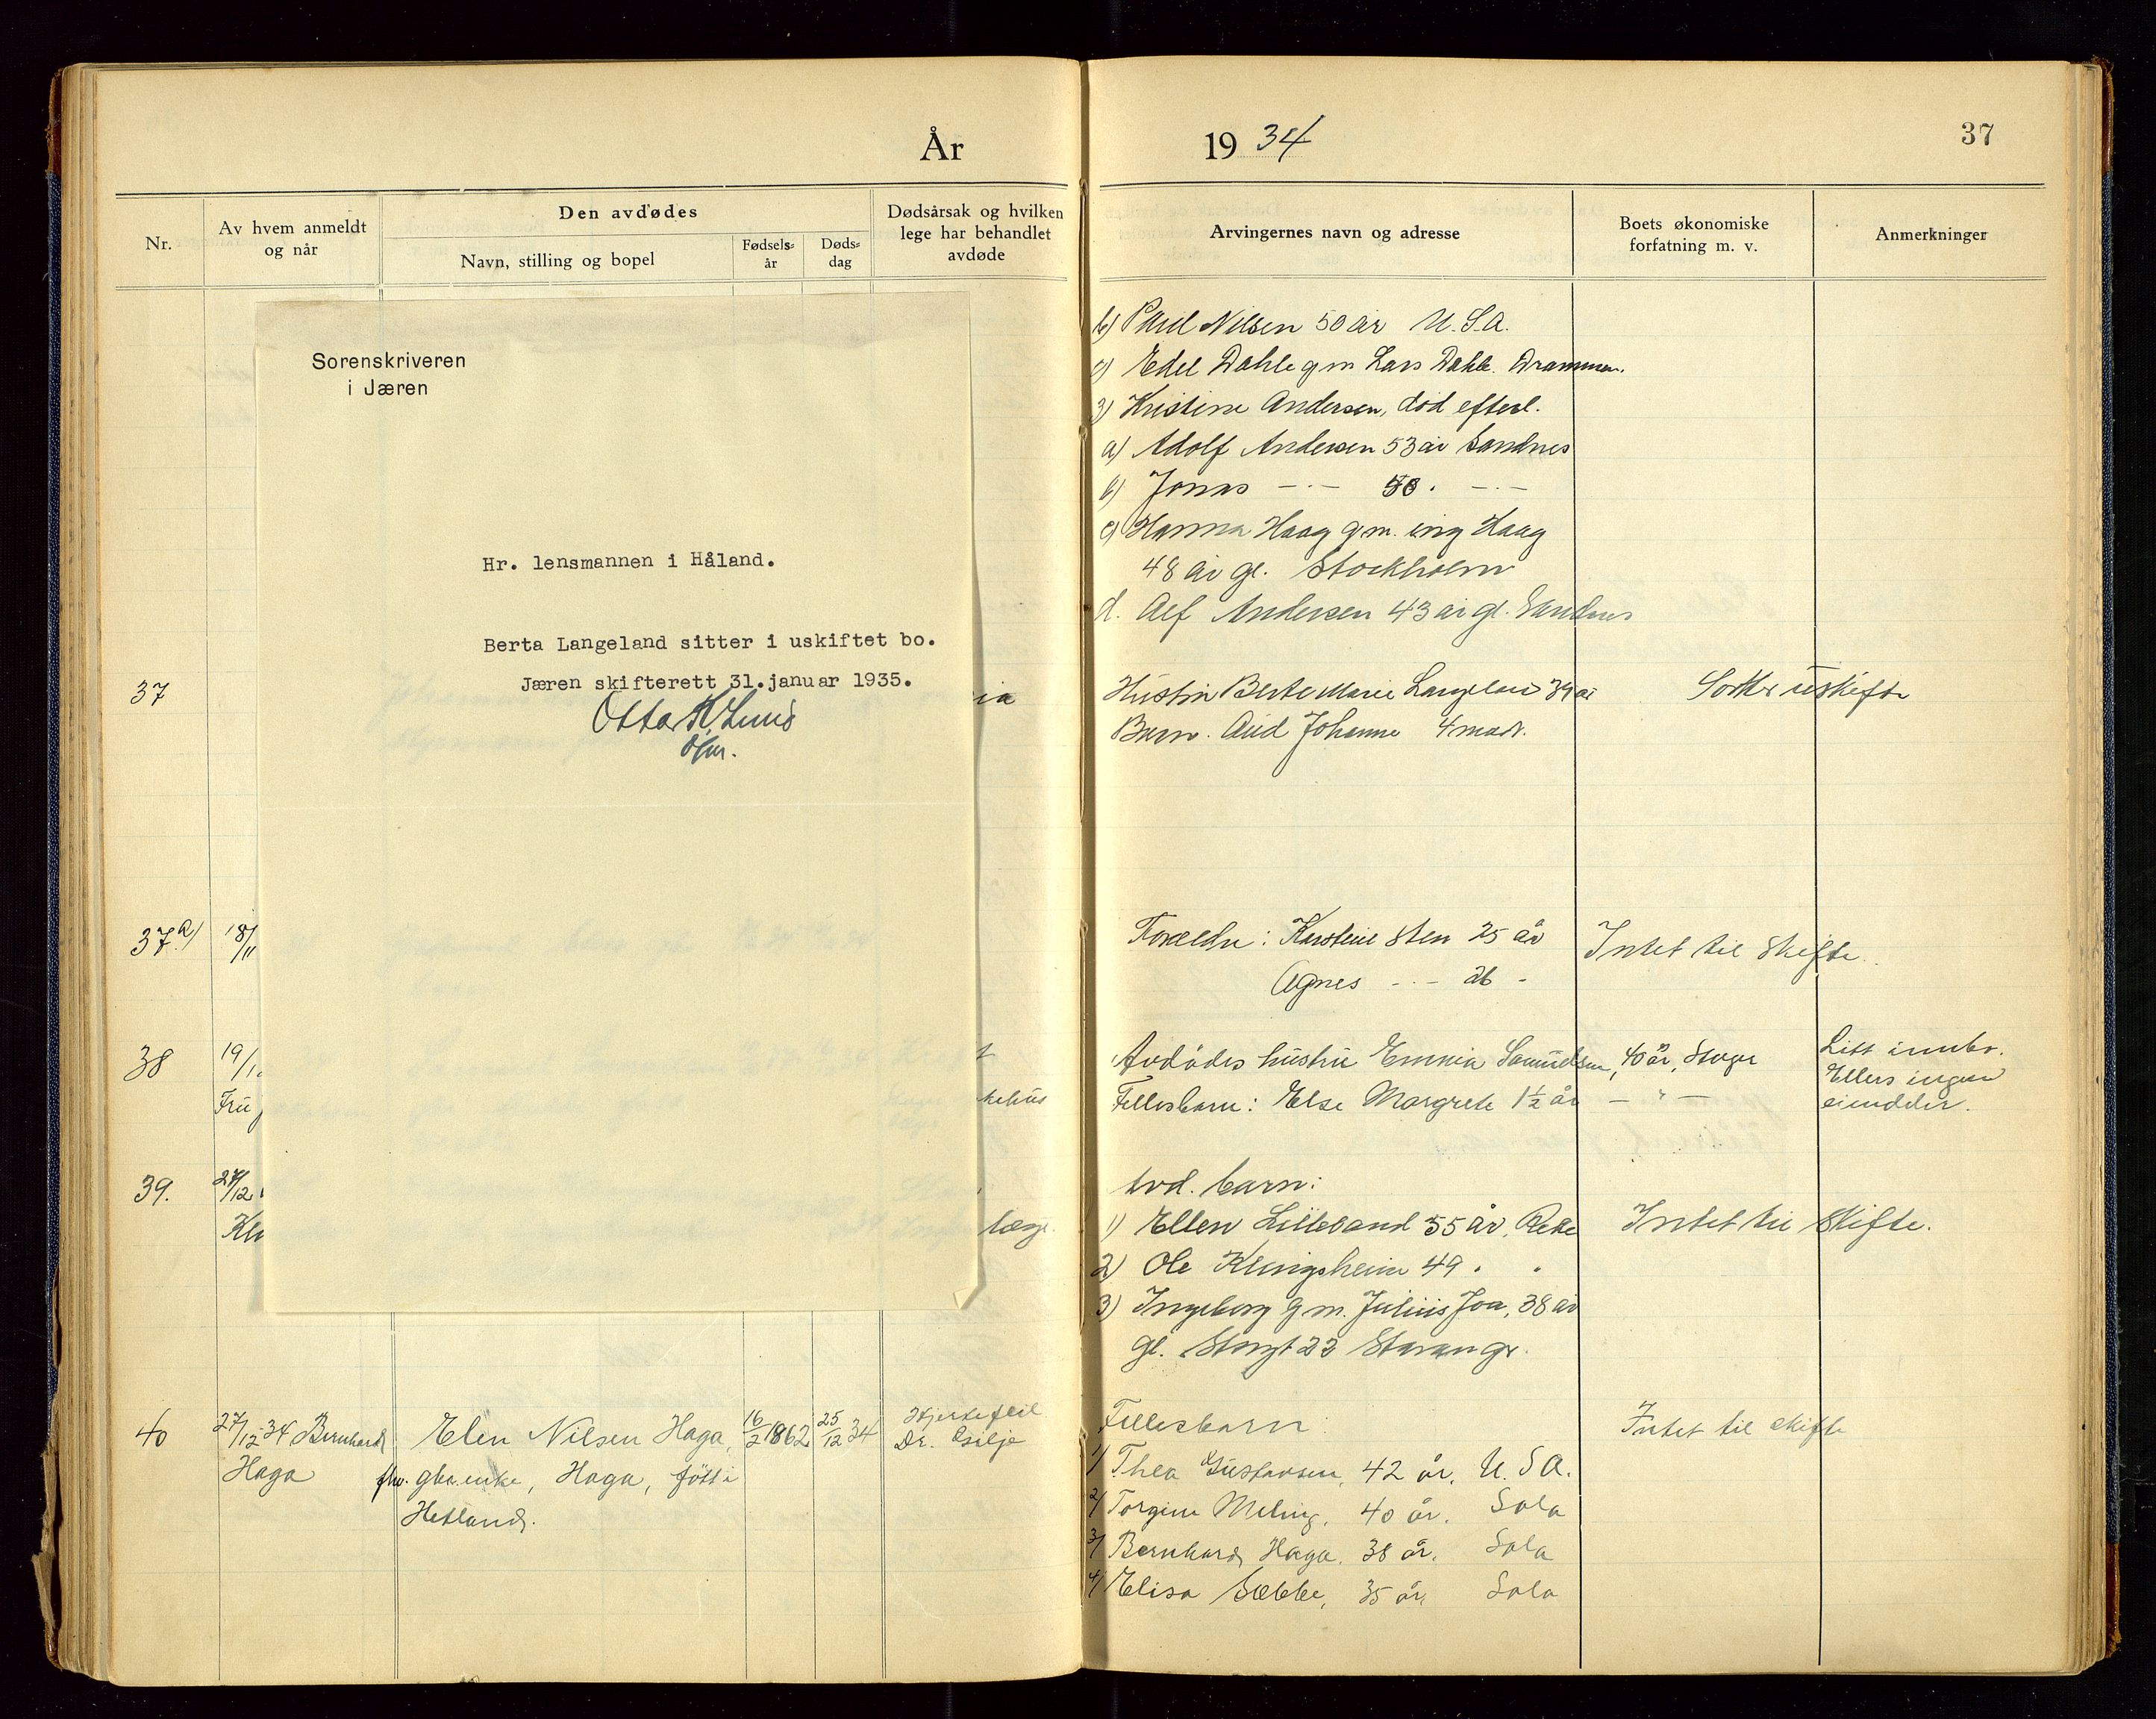 År
19 34
37
Nr.
Av hvem anmeldt
og når
Den avdødes
Navn, stilling og bopel
Fødsels=
år
Døds=
dag
Dødsårsak og hvilken
lege har behandlet
avdøde
Arvingernes navn og adresse
Boets økonomiske
forfatning m. v.
Anmerkninger
Sorenskriveren
i Jæren
Hr. lensmannen i Håland.
Berta Langeland sitter i uskiftet bo.
Jæren skifterett 31.januar 1935.
b) Paul Nilsen 50 år U.S.A.
c) Edel Dahle gm Lars Dahle. Drammen.
3) Kristine Andersen, død efterl.
a) Adolf Andersen 53 år Sandnes
b) Jonas — · — 50 . — · —
c) Hanna Haag gm. ing Haag
48 år gl. Stockholm
d. Alf Andersen 43 år gl. Sandnes
37
Hustru Berte Marie Langeland 39 år
Barn. Aud Johanne 4 mndr.
uskifte
37 a)
18/11
Foreldre: Karsteine Sten 25 år
Agnes - · - 26 -
Intet til skifte.
38
19/1
Fru
kehus
Avdødes hustru Emma Samuelsen, 40 år, Stvgr
Fellesbarn: Else Margrete 1½ år — " —
Litt innbo.
Ellers ingen
eiendeler.
39.
27/12
læge
Avd. barn:
1) Ellen Lilleland 55 år, Reke
2) Ole Klingsheim 49 . "
3) Ingeborg gm. Julius Joa, 38 år
gl. Storgt 23 Stavangr.
Intet til skifte.
40
27/12-34 Bernhard
Haga
Elen Nilsen Haga,
fhv. gbr.enke, Haga, født i
Hetland.
16/2 1862
25/12 34
Hjertefeil
Dr. Egilje
Fellesbarn:
1/ Thea Gustavsen, 42 år, U.S.A.
2/ Torgine Meling, 40 år. Sola
3/ Bernhard Haga, 38 år. Sola
4/ Elisa Sæbbe, 35 år, Sola
Intet til skifte